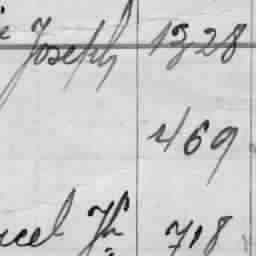 Joseph 1328
469
uel Jh 718